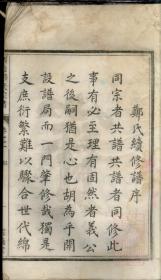 鄭氏續修譜序
同宗者共譜共譜者同修此
事有必至理有固然者義公
之後嗣猶是心也胡為乎開
設譜局而一門筆修哉獨是
支庶衍繁難以聯合世代綿